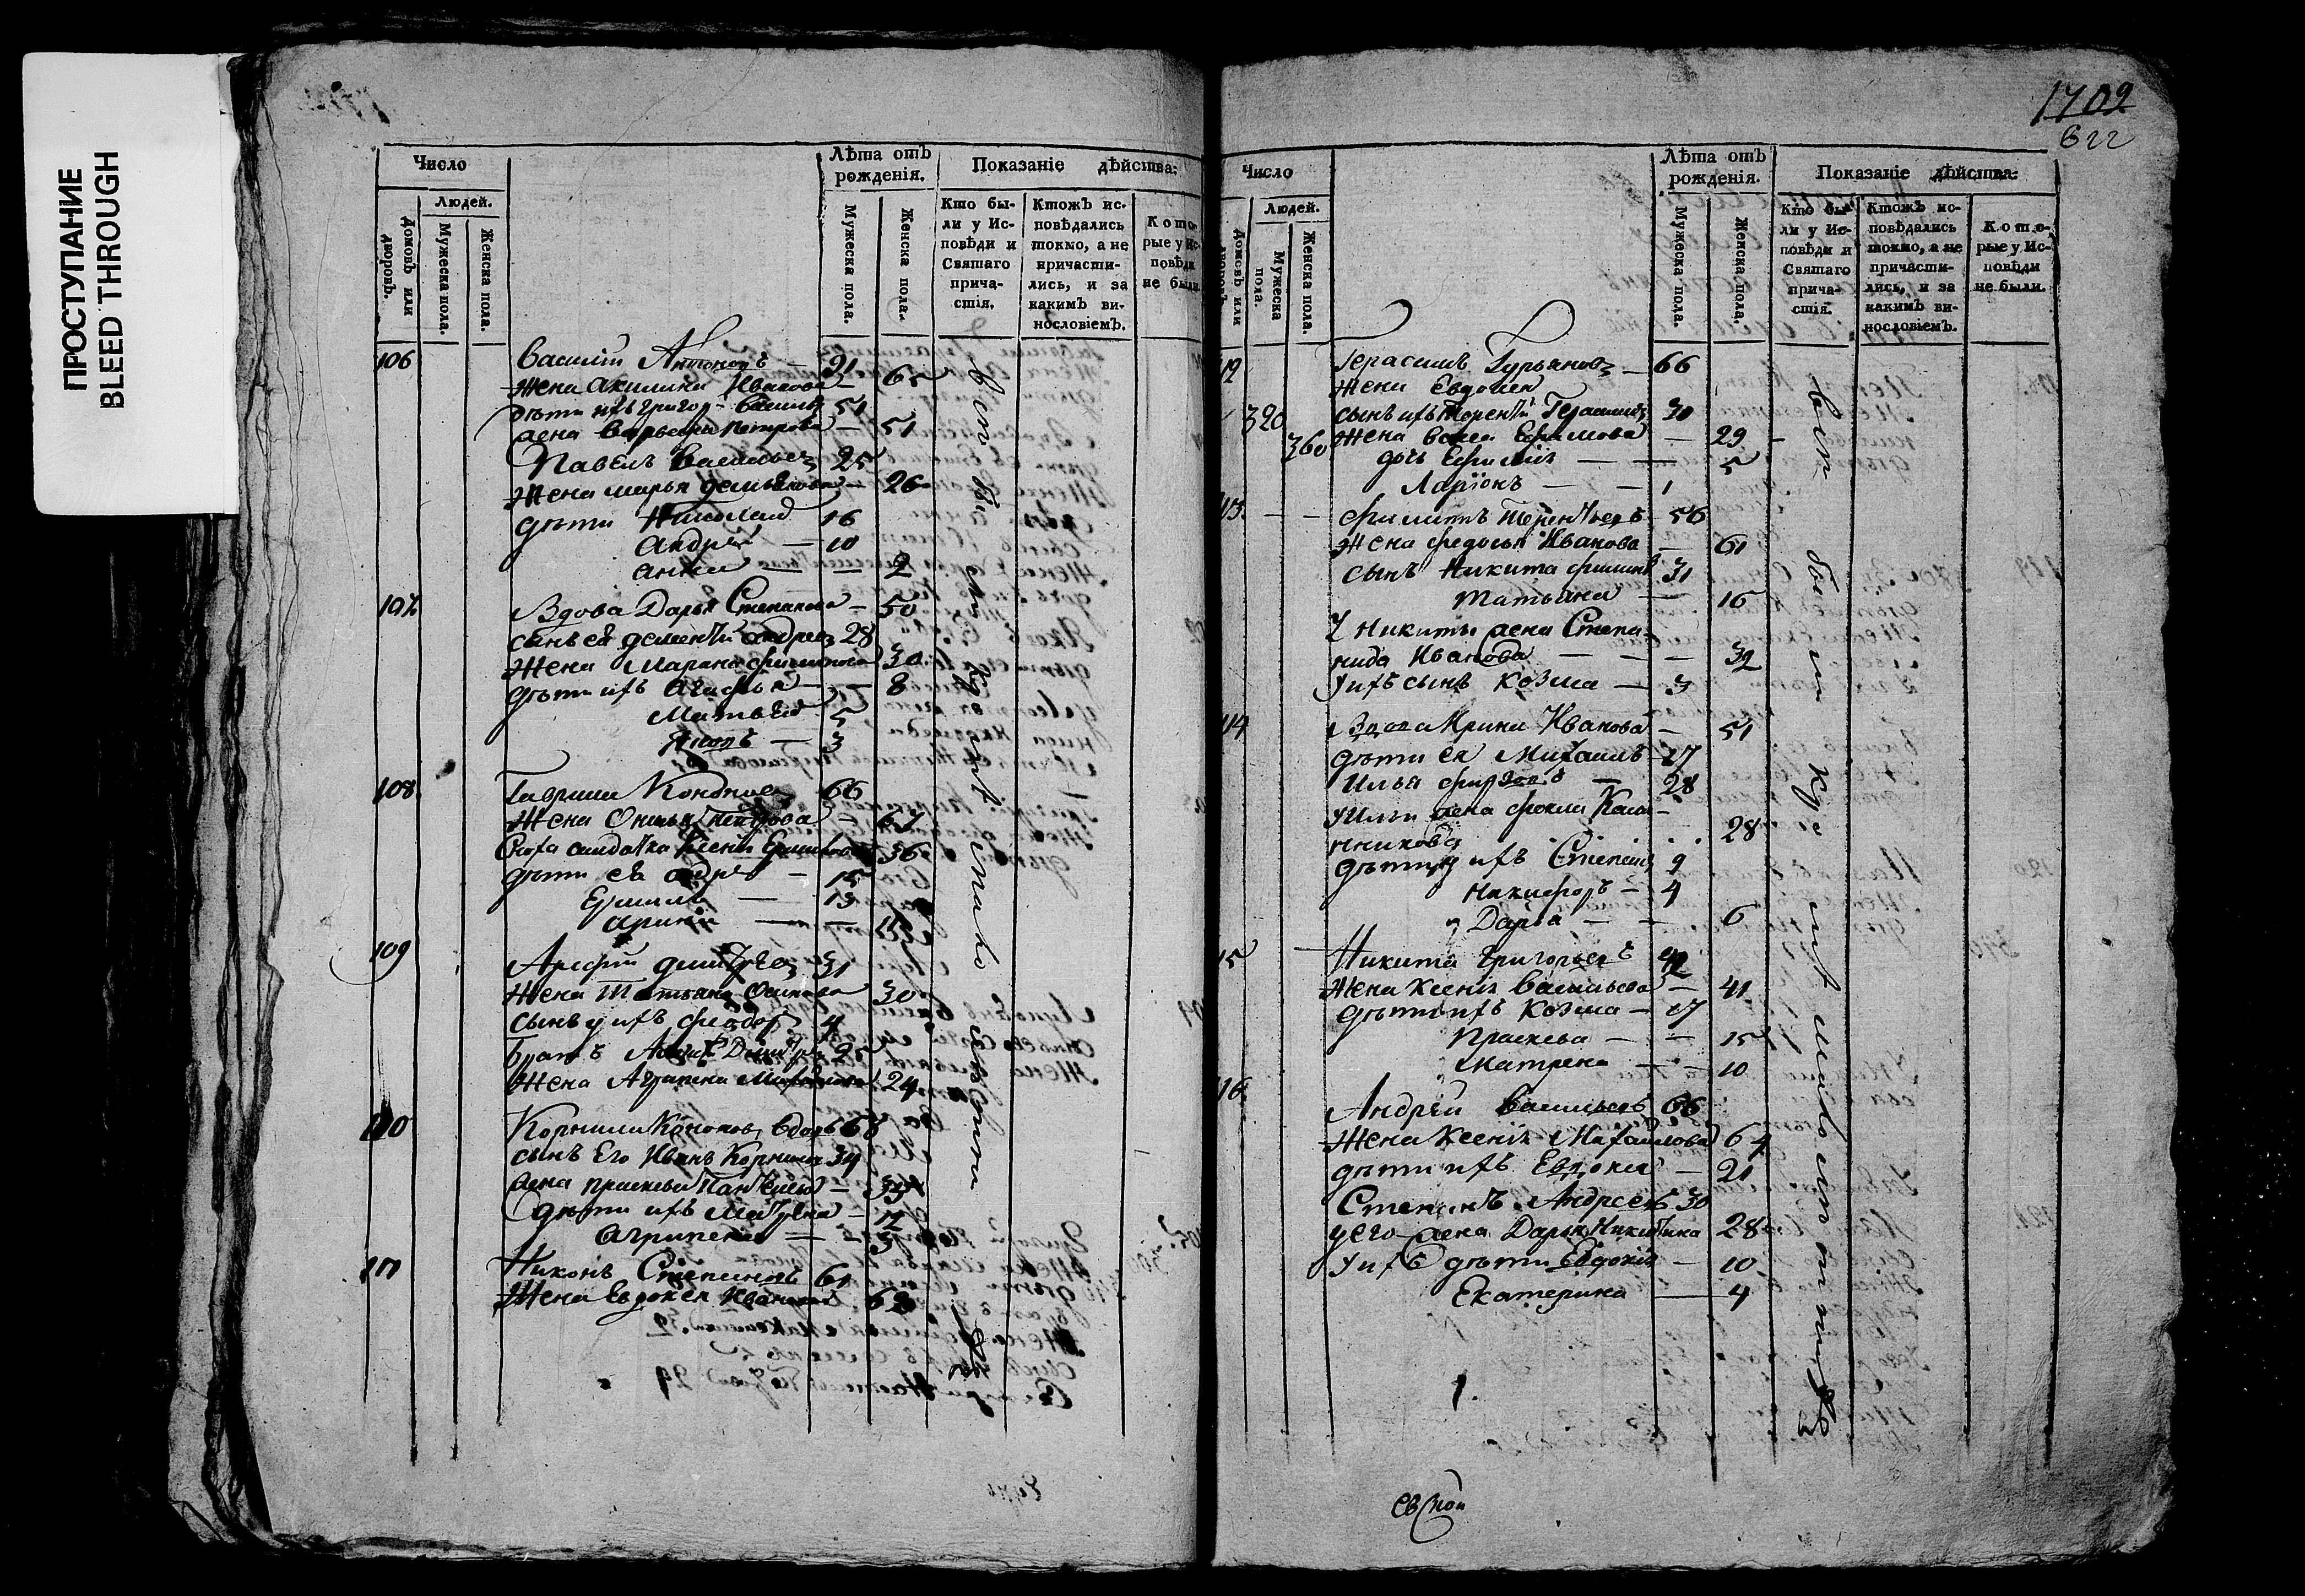 ПРОСТУПАНИЕ
BLEED THROUGH
Число
Лѣта отъ рожденія.
Показаніе дѣйства:
Людей.
Домовъ или дворовъ.
Мужеска пола.
Женска пола.
Мужеска пола.
Женска пола.
Кто бы-
ли у Ис-
повѣди и
Святаго
прича-
стія.
Ктожъ ис-
повѣдались
токмо, а не
причасти-
лись, и за
какимъ ви-
нословіемъ.
Кото-
рые у Ис-
повѣди
не были.
106 Василій Антоновъ 91
жена Акилина Иванова 65
дѣти ихъ Григор Васильевъ 51
жена Варвара Петрова 51
Павелъ Васильевъ 25
жена Марья Демьянова 26
дѣти Николай 16
Андрей 10
Анна 2
107 Вдова Дарья Степанова 50
сынъ ея Дементий Андреевъ 28
жена Марина Филипова 30
дѣти ихъ Агафья 8
Матвѣй 5
Яковъ 3
108 Гаврила 66
жена Петрова 67
Сноха солдатка Ксения 36
дѣти ея Андрей 15
Ермилъ 13
109 Арефий 31
жена Татьяна Осипова 30
сынъ у ихъ Феодоръ 4
Братъ 25
жена Агрипена Михайлова 24
110 Корнила Кононовъ вдовъ 68
сынъ Его Иванъ Корнилов 34
жена Прасковья
дѣти ихъ Матрена 12
Агрипена 3
111 Никонъ Степановъ 61
жена Евдокея Иванова
1702
622
Число
Лѣта отъ рожденія.
Показаніе дѣйства:
Людей.
Домовъ или дворовъ.
Мужеска пола.
Женска пола.
Мужеска пола.
Женска пола.
Кто бы-
ли у Ис-
повѣди и
Святаго
прича-
стія.
Ктожъ ис-
повѣдались
токмо, а не
причасти-
лись, и за
какимъ ви-
нословіемъ.
Кото-
рые у Ис-
повѣди
не были.
12 Герасимъ Гурьяновъ 66
жена Евдокея
320 сынъ ихъ Терентій Герасимовъ 30
360 жена Ефимова 29
дочь Ефимія 5
Ларіонъ 1
13 Филиппъ Терентьевъ 56
жена Федосья Иванова 61
сынъ Никита Филиповъ 31
Татьяна 16
У Никиты жена Степа-
нида Иванова 32
У ихъ сынъ Козма 3
14 Вдова Ирина Иванова 51
дѣти ея Михаилъ 27
Илья 28
У Ильи жена Фекла
28
дѣти у ихъ Степанъ 9
Никифоръ 4
Дарья 6
15 Никита Григорьевъ 42
жена Ксенія Васильева 41
дѣти ихъ Козма 17
Праскева 15
Матрена 10
16 Андрей Васильевъ 66
жена Ксенія Михайлова 64
дѣти ихъ Евдокея 21
Степанъ Андреевъ 30
у его жена Дарья Никитина 28
У ихъ дѣти Евдокія 10
Екатерина 4